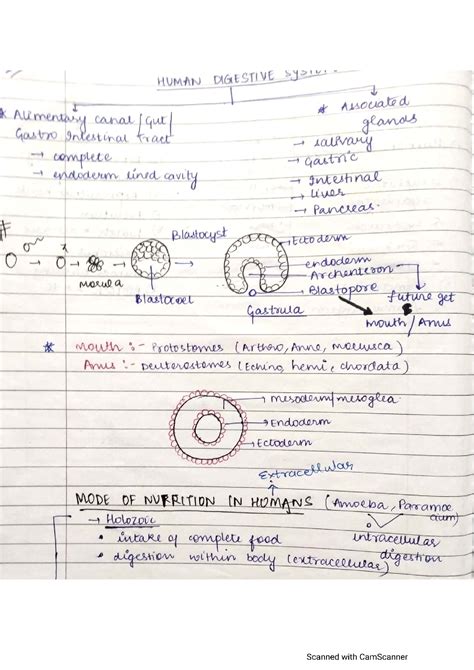 HUMAN DIGESTIVE SYSTEM
* Alimentary canal / Gut /
Gastro Intestinal Tract
→ complete
→ endoderm lined cavity
* Associated
glands
→ salivary
→ Gastric
→ Intestinal
→ Liver
→ Pancreas
#
Blastocyst
morula
Blastocoel
Ectoderm
endoderm
Archenteron
Blastopore
Gastrula
future get
Mouth / Anus
* Mouth :- Protostomes (Arthro, Anne, mollusca)
Anus :- Deuterostomes (Echino, hemi, chordata)
mesoderm/mesoglea
Endoderm
Ectoderm
Extracellular
MODE OF NUTRITION IN HUMANS (Amoeba, Paramoe
cium)
→ Holozoic
• intake of complete food
• digestion within body (extracellular)
intracellular
digestion
Scanned with CamScanner